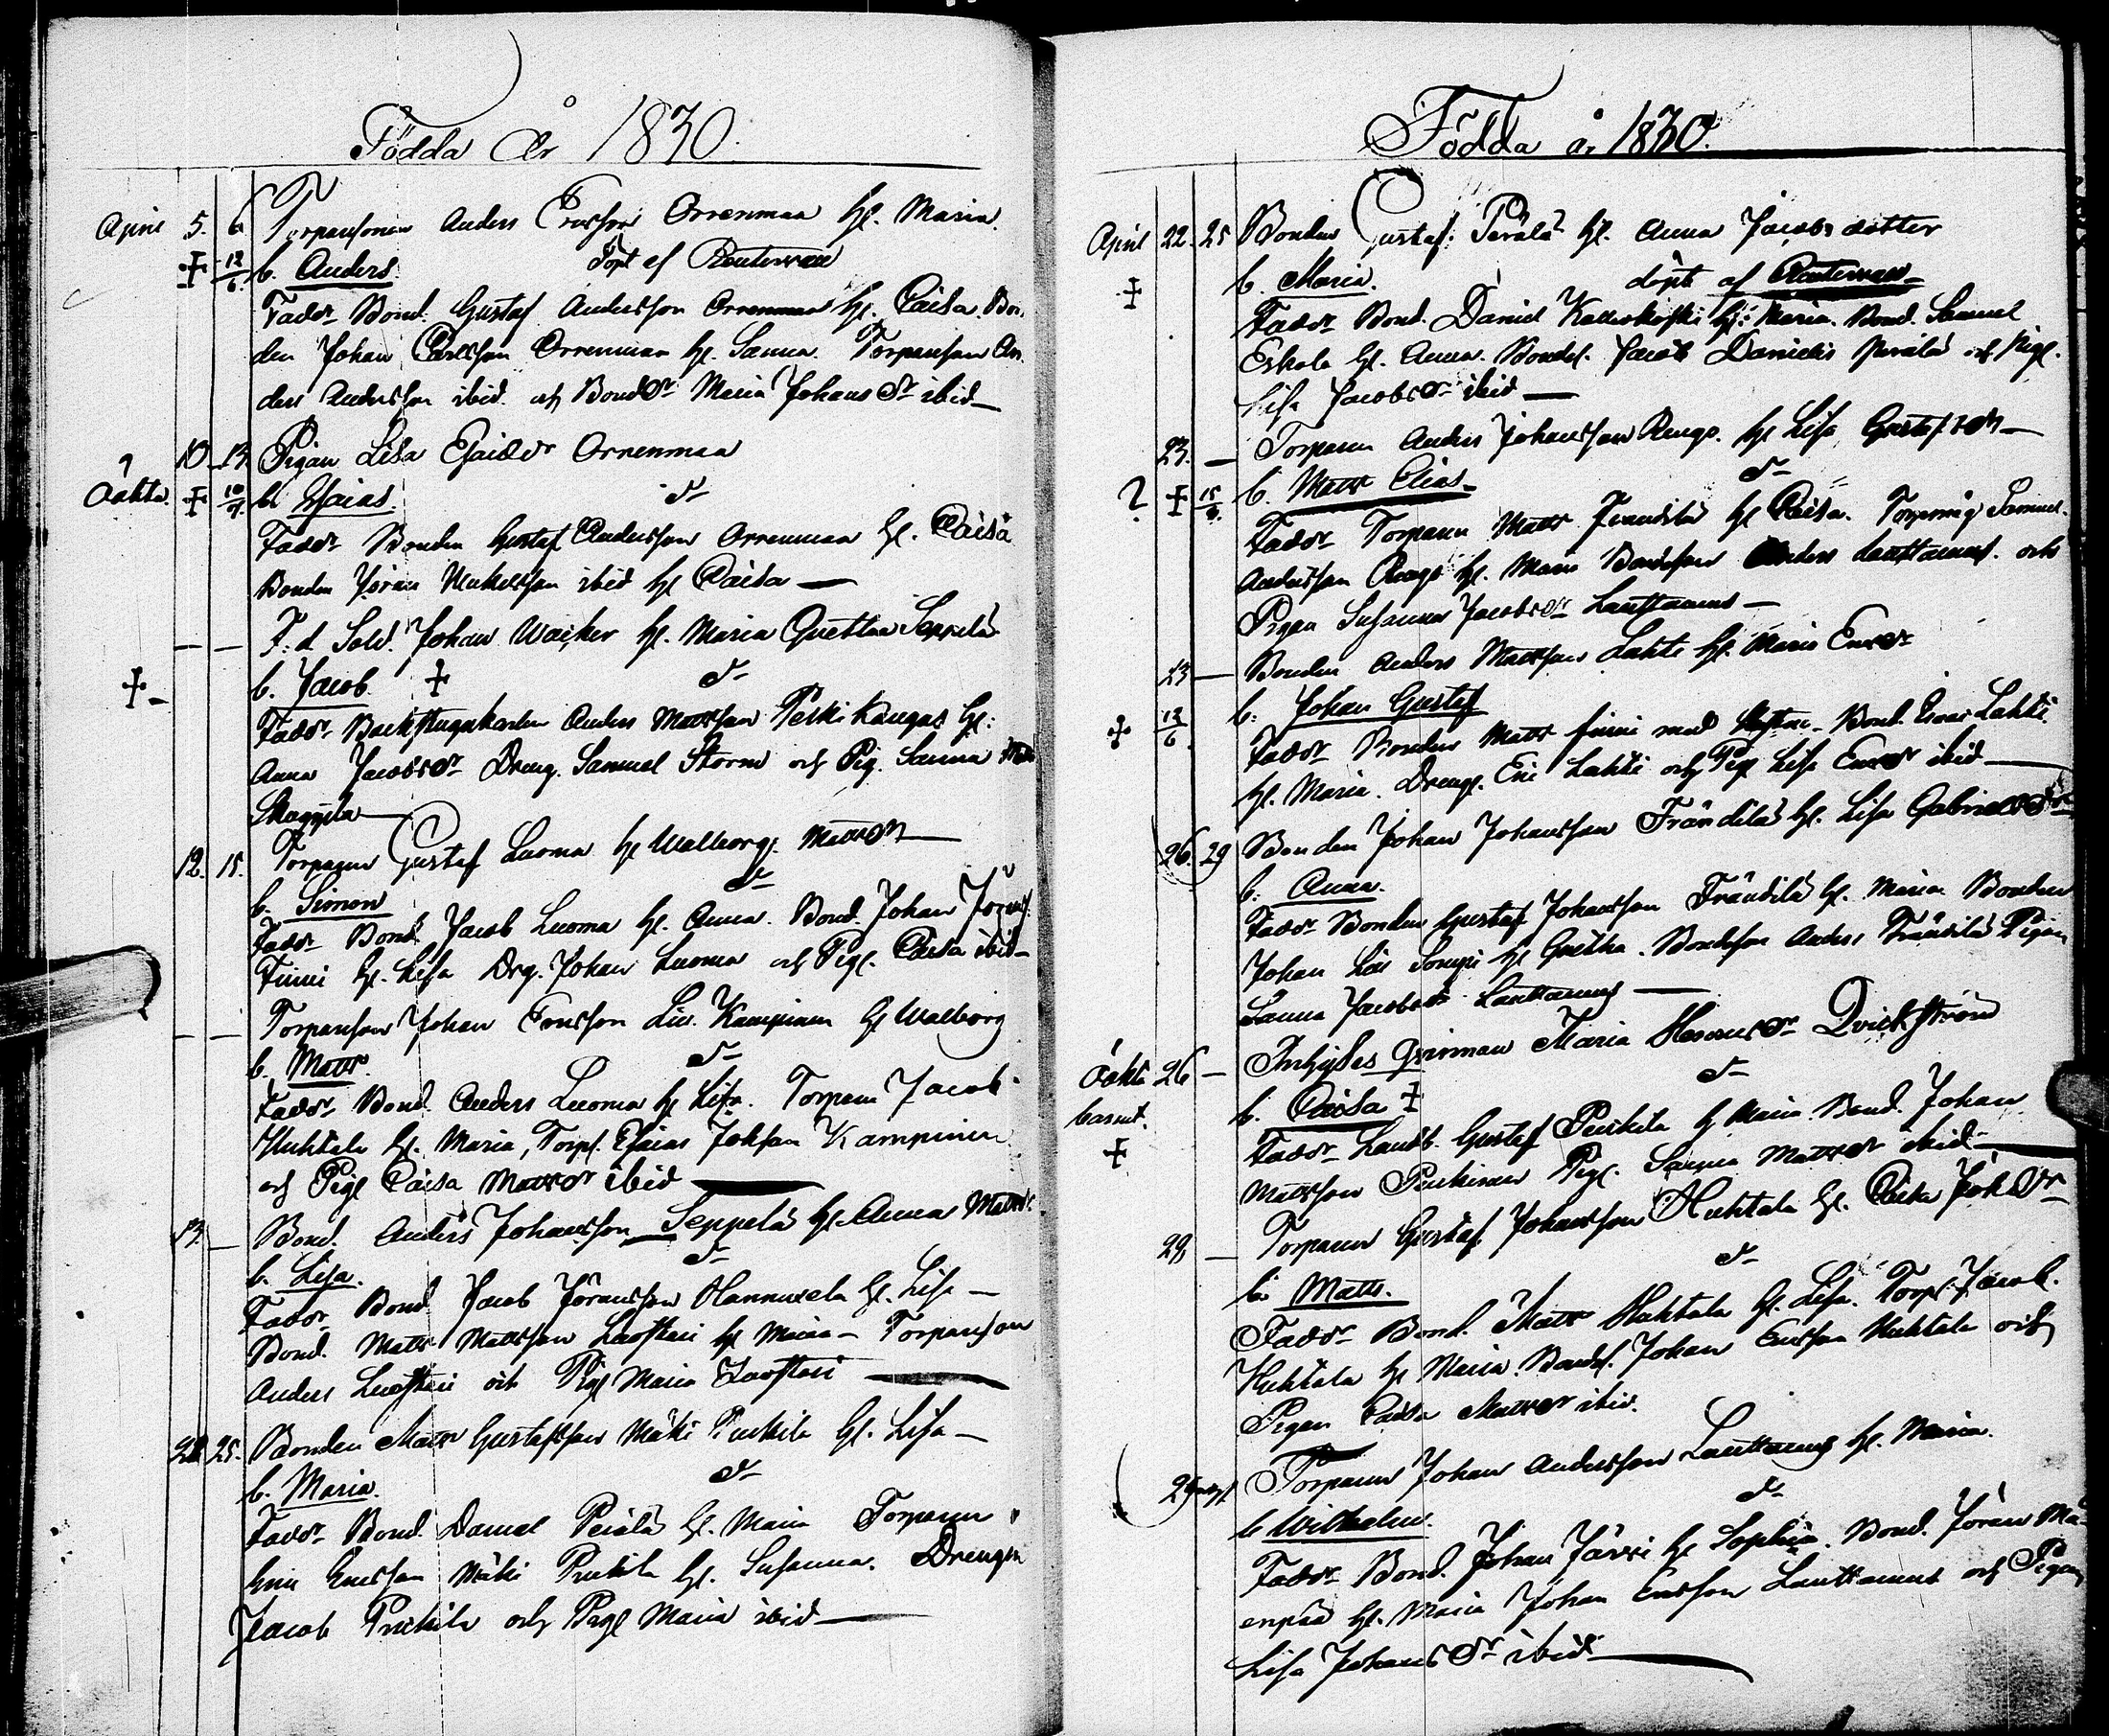 Födda År 1830.
April 5. 6. Torpareson Anders Ersson Orrenmaa H. Maria
† 12/6. b. Anders. Döpt af Reuterwall
Faddr Bond. Gustaf Andersson Orrenmaa H. Caisa. Bon-
den Johan Carlsson Orrenmaa H. Sanna. Torpareson An-
ders Andersson ibid. och Bonddr Maria Johans dr ibid —
10. 13. Pigan Lisa Esaiædr Orrenmaa
Oäkta. † b. Esaias. dr
Faddr Bonden Gustaf Andersson Orrenmaa H. Caisa
Bonden Jöran Mickelsson ibid H Caisa —
— — F:d Sold. Johan Wacker H. Maria Gretha Seppelä
† b. Jacob † dr
Faddr Backstugukarlen Anders Mattsson Peski Kangas H:
Anna Jacobsdr Dreng. Samuel Storm och Pig. Sanna
12. 15. Torparen Gustaf Luoma H Walborg Mattsdr —
b. Simon dr
Faddr Bond. Jacob Luoma H. Anna. Bond. Johan Jörans.
Finni H. Lisa Drg. Johan Luoma och Pigl. Caisa ibid —
— — Torpareson Johan Ersson Liv. Kampinen H Walborg
b. Matts. dr
Faddr Bond. Anders Luoma H Lisa. Torparen Jacob
Huhtala H. Maria, Torpl. Esaias Johsson Kampinen
och Pigl Caisa Mattsdr ibid —
13. — Bond. Anders Johansson Seppelä H. Anna Mattsdr.
b. Lisa. dr
Faddr Bond Jacob Jöransson Hannuxela H. Lisa —
Bond. Matts Mattsson Luostari H Maria — Torpareson
Anders Luostari och Pigl Maria Luostari —
25. Bonden Matts Gustafsson Mäki Purkila H. Lisa —
b. Maria. dr
Faddr Bond. Daniel Perälä H. Maria Torparen
Eric Ersson Mäki Purkila H. Susanna. Drengen
Jacob Purkila och Pigl Maria ibid —
Födda år 1830.
April 22. 25 Bonden Gustaf Perälä H. Anna Jacobsdotter
† b. Maria. döpte af Reuterwall
Faddr Bond. Daniel Kalliokoski H: Maria. Bond. Samuel
Eskola H. Anna. Bondes. Jacob Daniels Perälä och Pigl.
Lisa Jacobsdr ibid —
23. — Torparen Anders Johansson Rengo. H Lisa Gustafsdr —
? † 15 b. Matts Elias — dr
Faddr Torparen Matts Frändilä H Caisa. Torpmåg Samuel
Andersson Rengo H. Maria Bondeson Anders Lauttamus. och
Pigan Susanna Jacobsdr Lauttamus —
23 — Bonden Anders Mattsson Lahti H. Maria Ersdr
† 12/6 b: Johan Gustaf
Faddr Bonden Matts Finni med Bond. Lahti
H. Maria. Drengl. Eric Lahti och Pigl Lisa Ersdr ibid —
26. 29 Bonden Johan Johansson Frändilä H. Lisa Gabrielsdr —
b: Anna.
Faddr Bonden Gustaf Johansson Frändilä H. Maria Bonden
Johan H Gretha. Bondeson Anders Frändilä Pigan
Sanna Jacobsdr Lauttamus —
Oäkta 26 — Inhyses qvinnan Maria Hermansdr Qvickström
barnet. b. Caisa † dr
† Faddr Landb. Gustaf Purkila H Maria Bond. Johan
Mattsson Purkinen Pigl. Sanna Mattsdr ibid —
29 — Torparen Gustaf Johansson Huhtala H. Caisa Joh dr —
b: Matts. dr
Faddr Bond. Matts Huhtala H. Lisa. Torpl. Jacob
Huhtala H Maria Bondes. Johan Ersson Huhtala och
Pigan Caisa Mattsdr ibid.
Torparen Johan Andersson Lauttamus H. Maria.
b Wilhelm. dr
Faddr Bond. Johan Järvi H Sophia. Bond. Jöran Mä-
enpää H. Maria Johan Ersson Lauttamus och Pigan
Lisa Johans dr ibid —